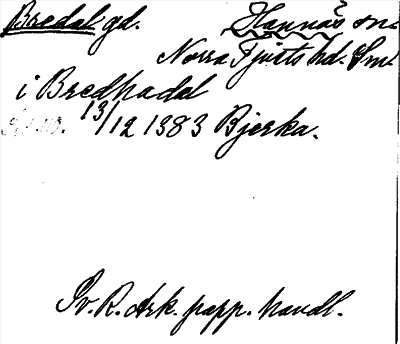 Bredal gd. Hannäs sn.
Norra Tjusts hd. Sml.
i Bredhadal
13/12 1383 Bjerka.
Sv. R. Ark. papp. handl.